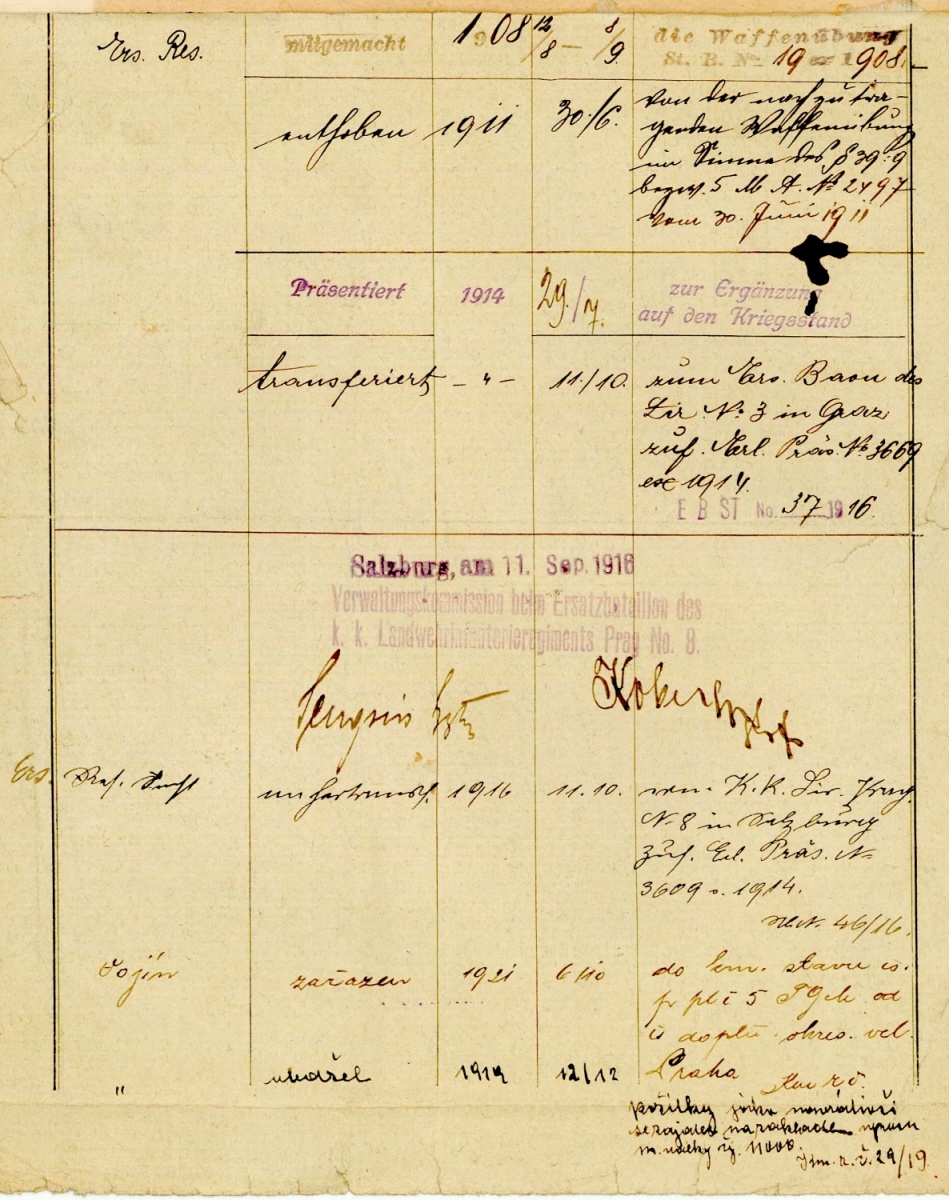 Ers. Res. mitgemacht 1908 12/8 – 8/9. die Waffenübung
St. B. No 19 ex 1908.
enthoben 1911 30./6. von der nachzutra-
genden Waffenübung
im Sinne des § 39:9
bezw. 5 M. A. No 2497
vom 30. Juni 1911
Präsentiert 1914 29./7. zur Ergänzung
auf den Kriegsstand
transferiert – " – 11./10. zum Ers. Baon des
Lir No. 3 in Graz
zuf. Erl. Präs. No 3669
ex 1914.
E B ST No. 37 1916.
Salzburg, am 11. Sep. 1916
Verwaltungskommission beim Ersatzbataillon des
k. k. Landwehrinfanterieregiments Prag No. 8.
Ers. Res. 1916 11.10. vom K.K. Lir. Prag
N. 8 in Salzburg
zuf. Erl. Präs. N.
3609 v. 1914.
46/16.
Vojín zařazen 1921 6/10 do km. stavu
pl. č 5 od
č doplň. okres. vel.
Praha
" 1919 12/12
požitky jako
na základě
m. č. 29/19.